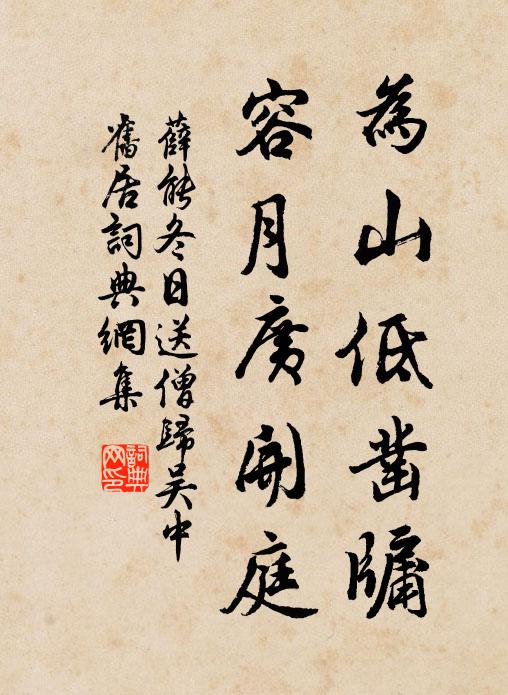 為山低鑿牖
容月廣開庭
薛能冬日送僧歸吳中
舊居詞典網集
詞典网印